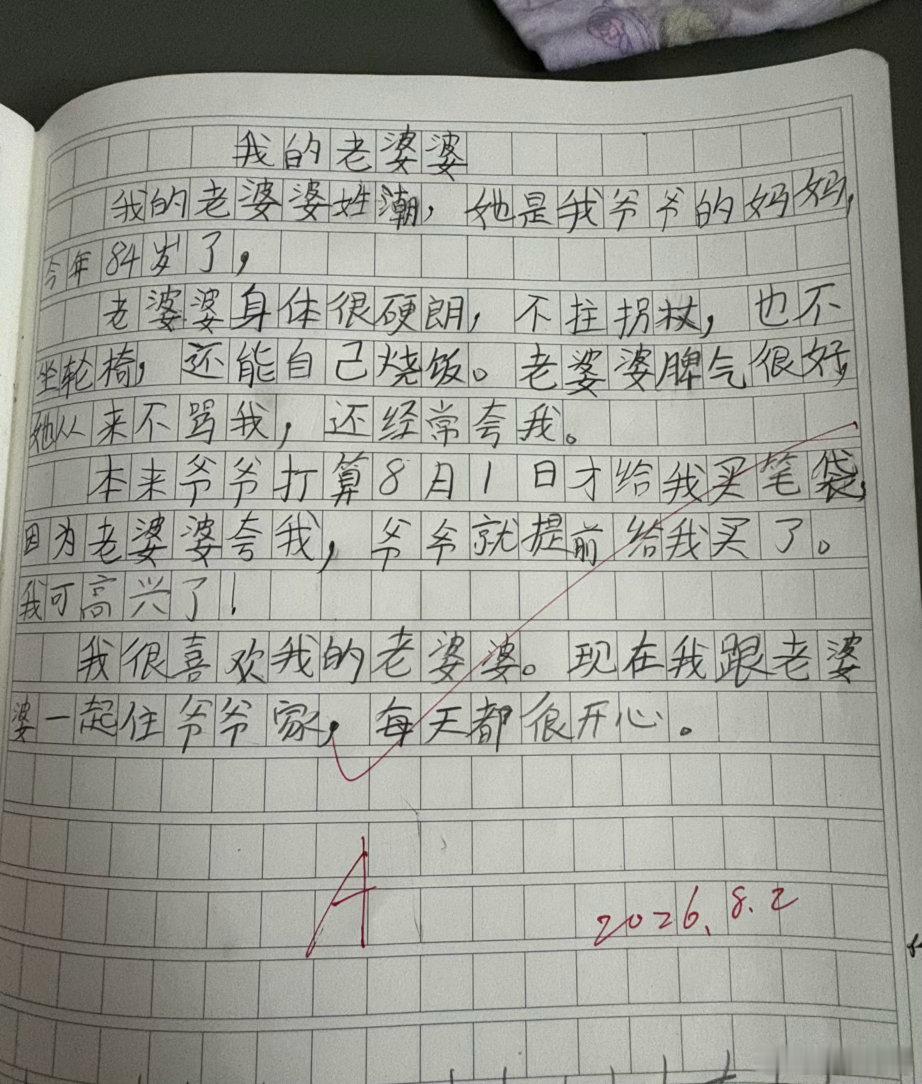 我的老婆婆
我的老婆婆姓潮，她是我爷爷的妈妈，
今年84岁了，
老婆婆身体很硬朗，不拄拐杖，也不
坐轮椅，还能自己烧饭。老婆婆脾气很好，
她从来不骂我，还经常夸我。
本来爷爷打算8月1日才给我买笔袋，
因为老婆婆夸我，爷爷就提前给我买了。
我可高兴了！
我很喜欢我的老婆婆。现在我跟老婆
婆一起住爷爷家，每天都很开心。
A
2026.8.2